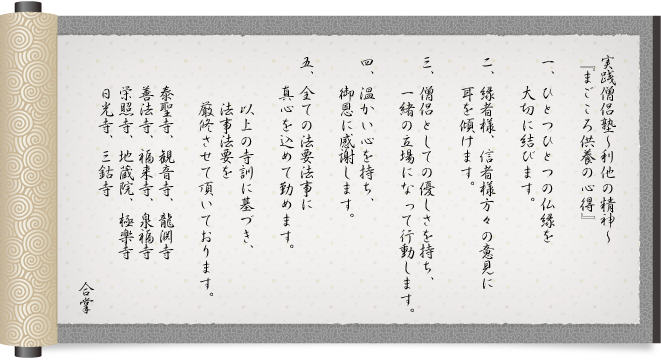 実践僧侶塾～利他の精神～
『まごころ供養の心得』
一、ひとつひとつの仏縁を
大切に結びます。
二、縁者様、信者様方々の意見に
耳を傾けます。
三、僧侶としての優しさを持ち、
一緒の立場になって行動します。
四、温かい心を持ち、
御恩に感謝します。
五、全ての法要法事に
真心を込めて勤めます。
以上の寺訓に基づき、
法事法要を
厳修させて頂いております。
泰聖寺、観音寺、龍渕寺
善法寺、福来寺、泉福寺
栄照寺、地蔵院、極楽寺
日光寺、三鈷寺
合掌